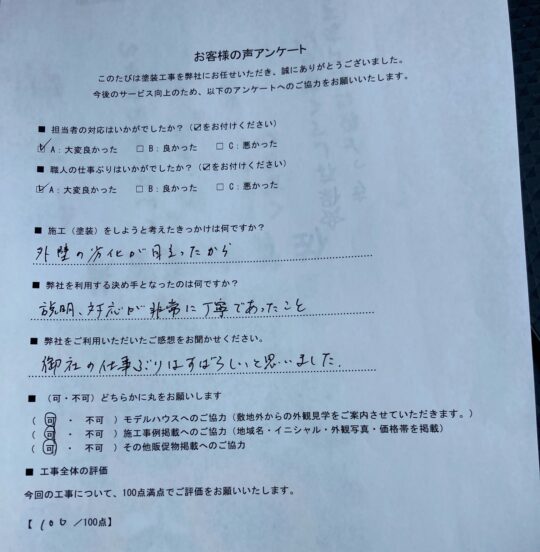 お客様の声アンケート
このたびは塗装工事を弊社にお任せいただき、誠にありがとうございました。
今後のサービス向上のため、以下のアンケートへのご協力をお願いいたします。
■ 担当者の対応はいかがでしたか？（☑をお付けください）
☑ A：大変良かった □ B：良かった □ C：悪かった
■ 職人の仕事ぶりはいかがでしたか？（☑をお付けください）
☑ A：大変良かった □ B：良かった □ C：悪かった
■ 施工（塗装）をしようと考えたきっかけは何ですか？
外壁の劣化が目立ったから
■ 弊社を利用する決め手となったのは何ですか？
説明、対応が非常に丁寧であったこと
■ 弊社をご利用いただいたご感想をお聞かせください。
御社の仕事ぶりはすばらしいと思いました。
■ （可・不可）どちらかに丸をお願いします
（ 可 ・ 不可 ）モデルハウスへのご協力（敷地外からの外観見学をご案内させていただきます。）
（ 可 ・ 不可 ）施工事例掲載へのご協力（地域名・イニシャル・外観写真・価格帯を掲載）
（ 可 ・ 不可 ）その他販促物掲載へのご協力
■ 工事全体の評価
今回の工事について、100点満点でご評価をお願いいたします。
【 100 ／100点】